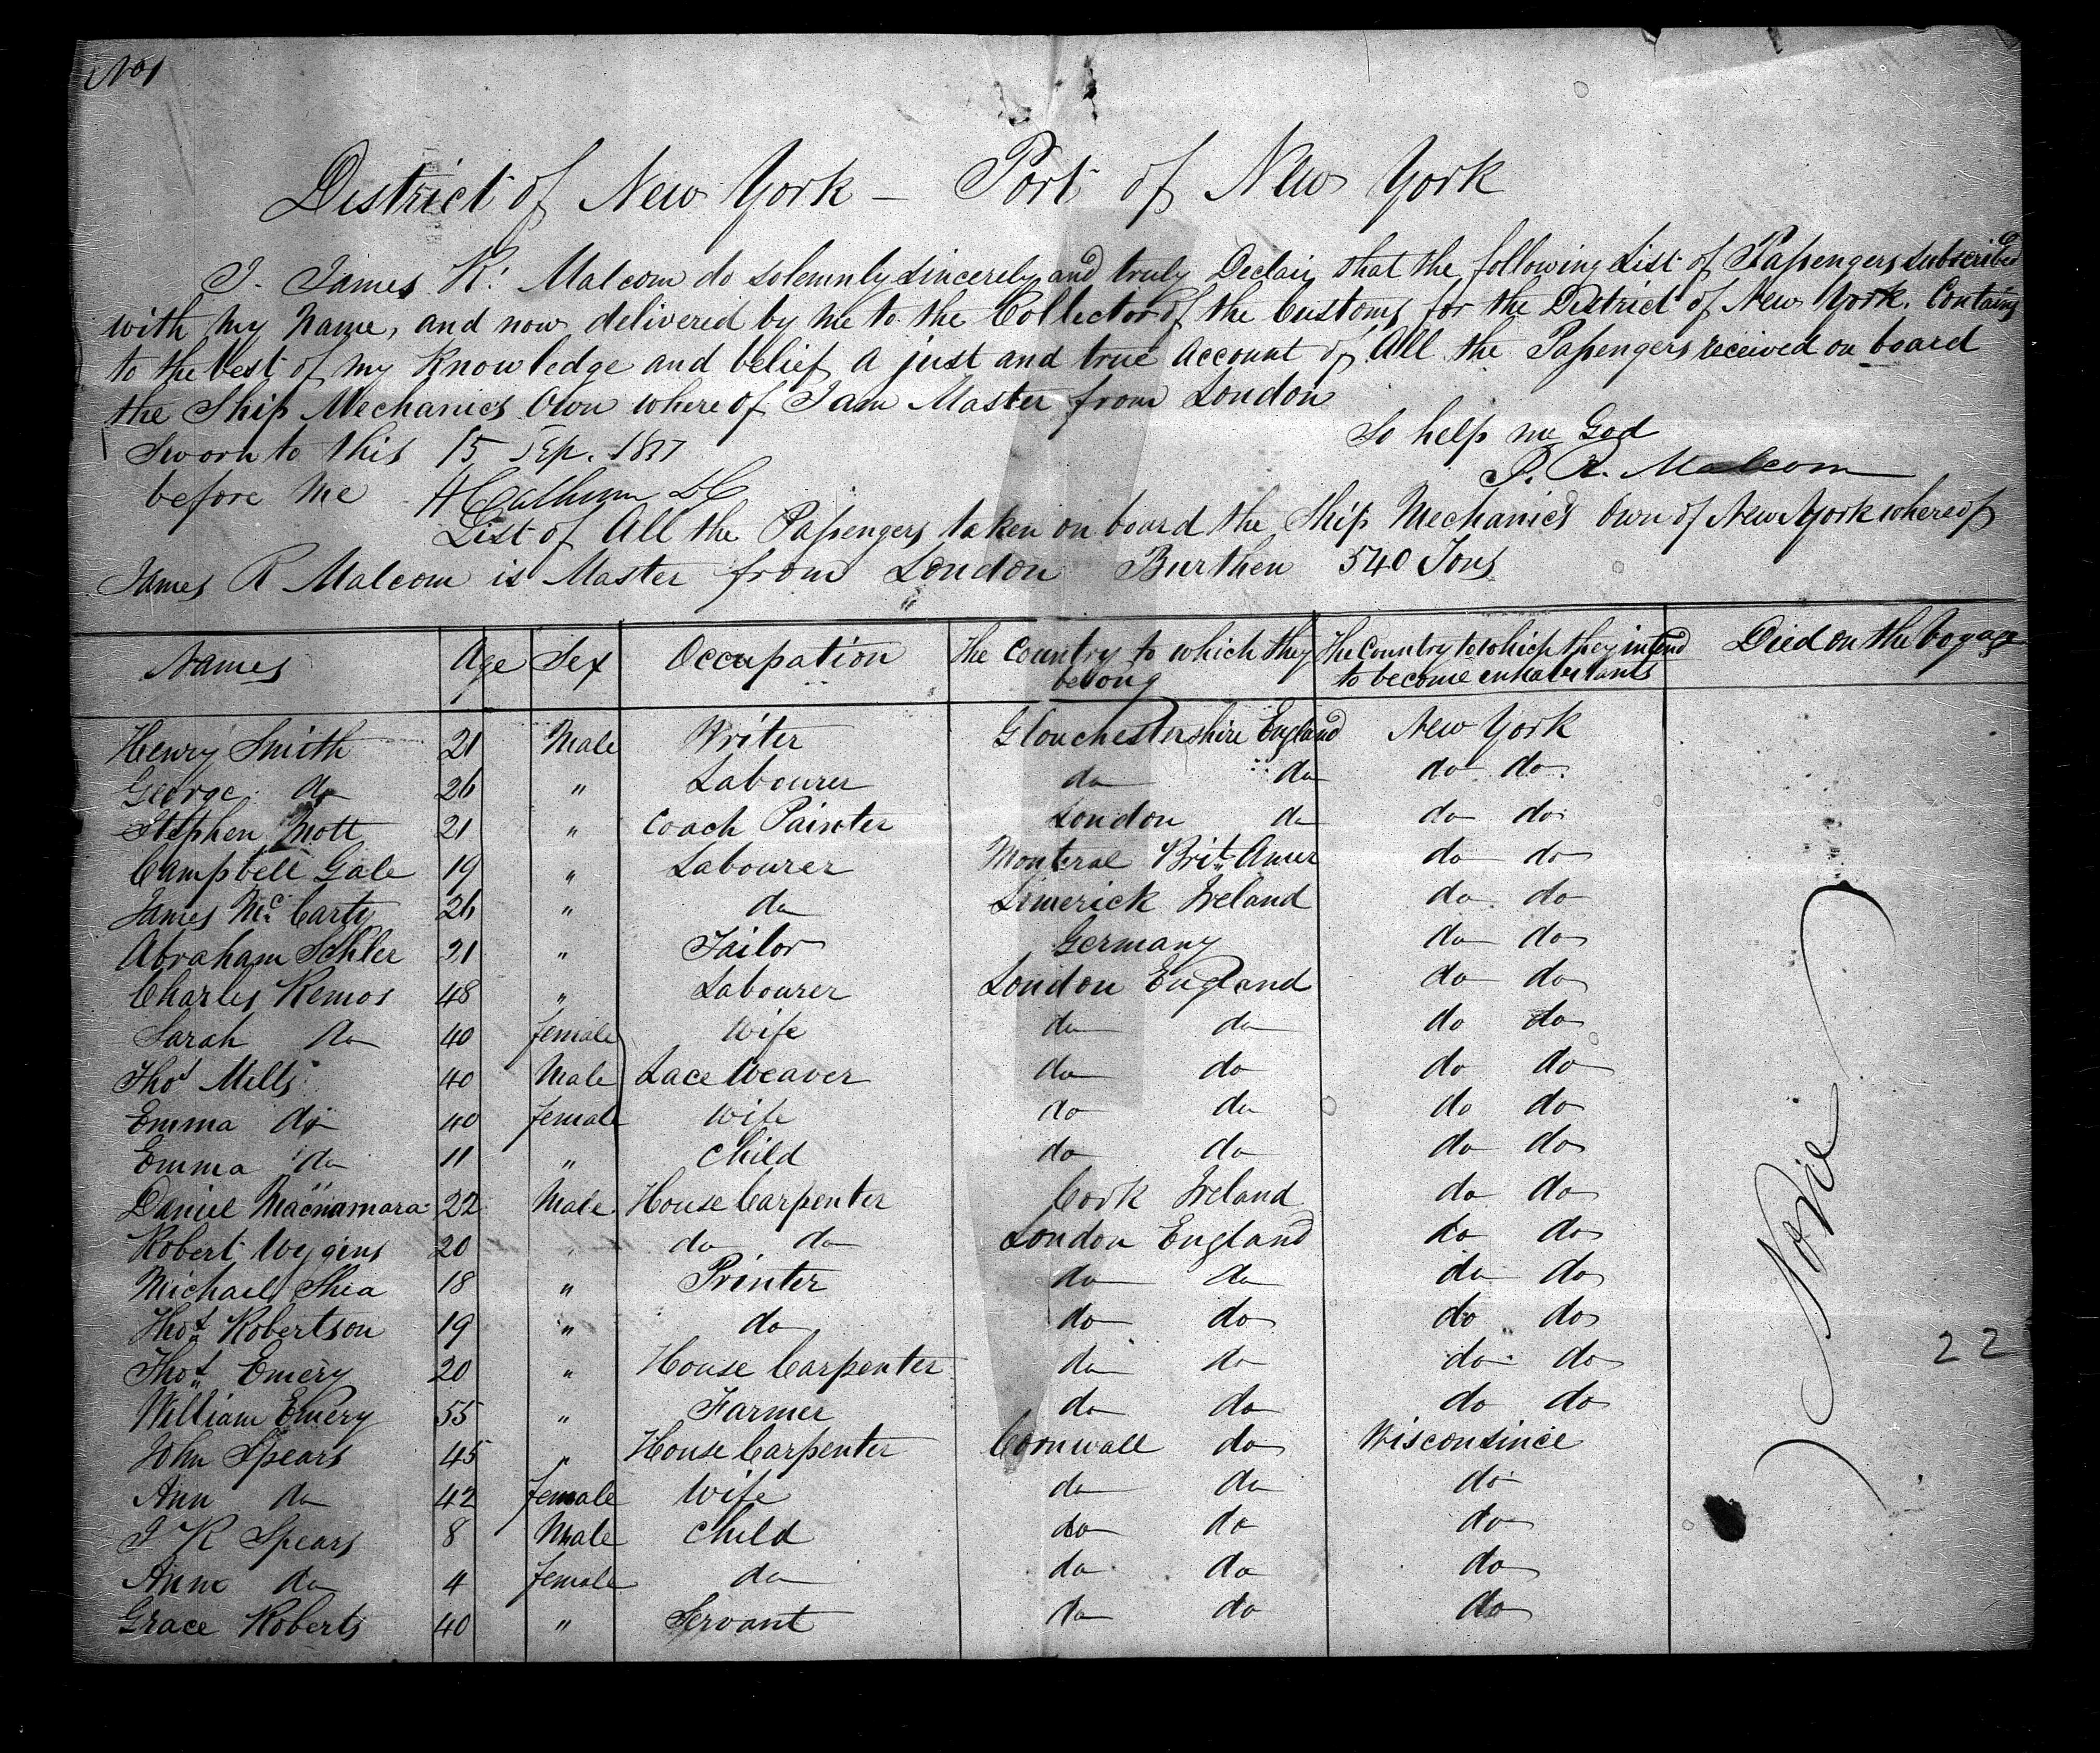 No 1
District of New York — Port of New York
I. James R. Malcom do solemnly sincerely and truly Declair that the following List of Passengers subscribed
with my name, and now delivered by me to the Collector of the Customs for the District of New York. Contains
to the best of my Knowledge and belief a just and true account of All the Passengers received on board
the Ship Mechanics Own whereof I am Master from London
So help me God
Sworn to this 15 Sep.
J. R. Malcom
before me
List of All the Passengers taken on board the Ship Mechanics Own of New York whereof
James R Malcom is Master from London Burthen 540 Tons
Names Age Sex Occupation The Country to which they belong The Country to which they intend to become inhabitants Died on the Voyage
Henry Smith 21 Male Writer Glouchestershire England New York
George do 26 " Labourer do do do do
Stephen Mott 21 " Coach Painter London do do do
Campbell Gale 19 " Labourer Monteral Brit Amer do do
James McCarty 26 " do Limerick Ireland do do
Abraham Schler 21 " Tailor Germany do do
Charles Kemos 48 " Labourer London England do do
Sarah do 40 female Wife do do do do
Thos Mills 40 Male Lace Weaver do do do do
Emma do 40 female Wife do do do do
Emma do 11 " Child do do do do
Daniel Macnamara 22 Male House Carpenter Cork Ireland do do
Robert Wygins 20 " do do London England do do
Michael Shea 18 " Printer do do do do
Thos Robertson 19 " do do do do do
Thos Emery 20 " House Carpenter do do do do
William Emery 55 " Farmer do do do do
John Spears 45 " House Carpenter Cornwall do Wisconsince
Ann do 42 female Wife do do do
J K Spears 8 Male Child do do do
Anne do 4 female do do do do
Grace Roberts 40 " Servant do do do
None
22